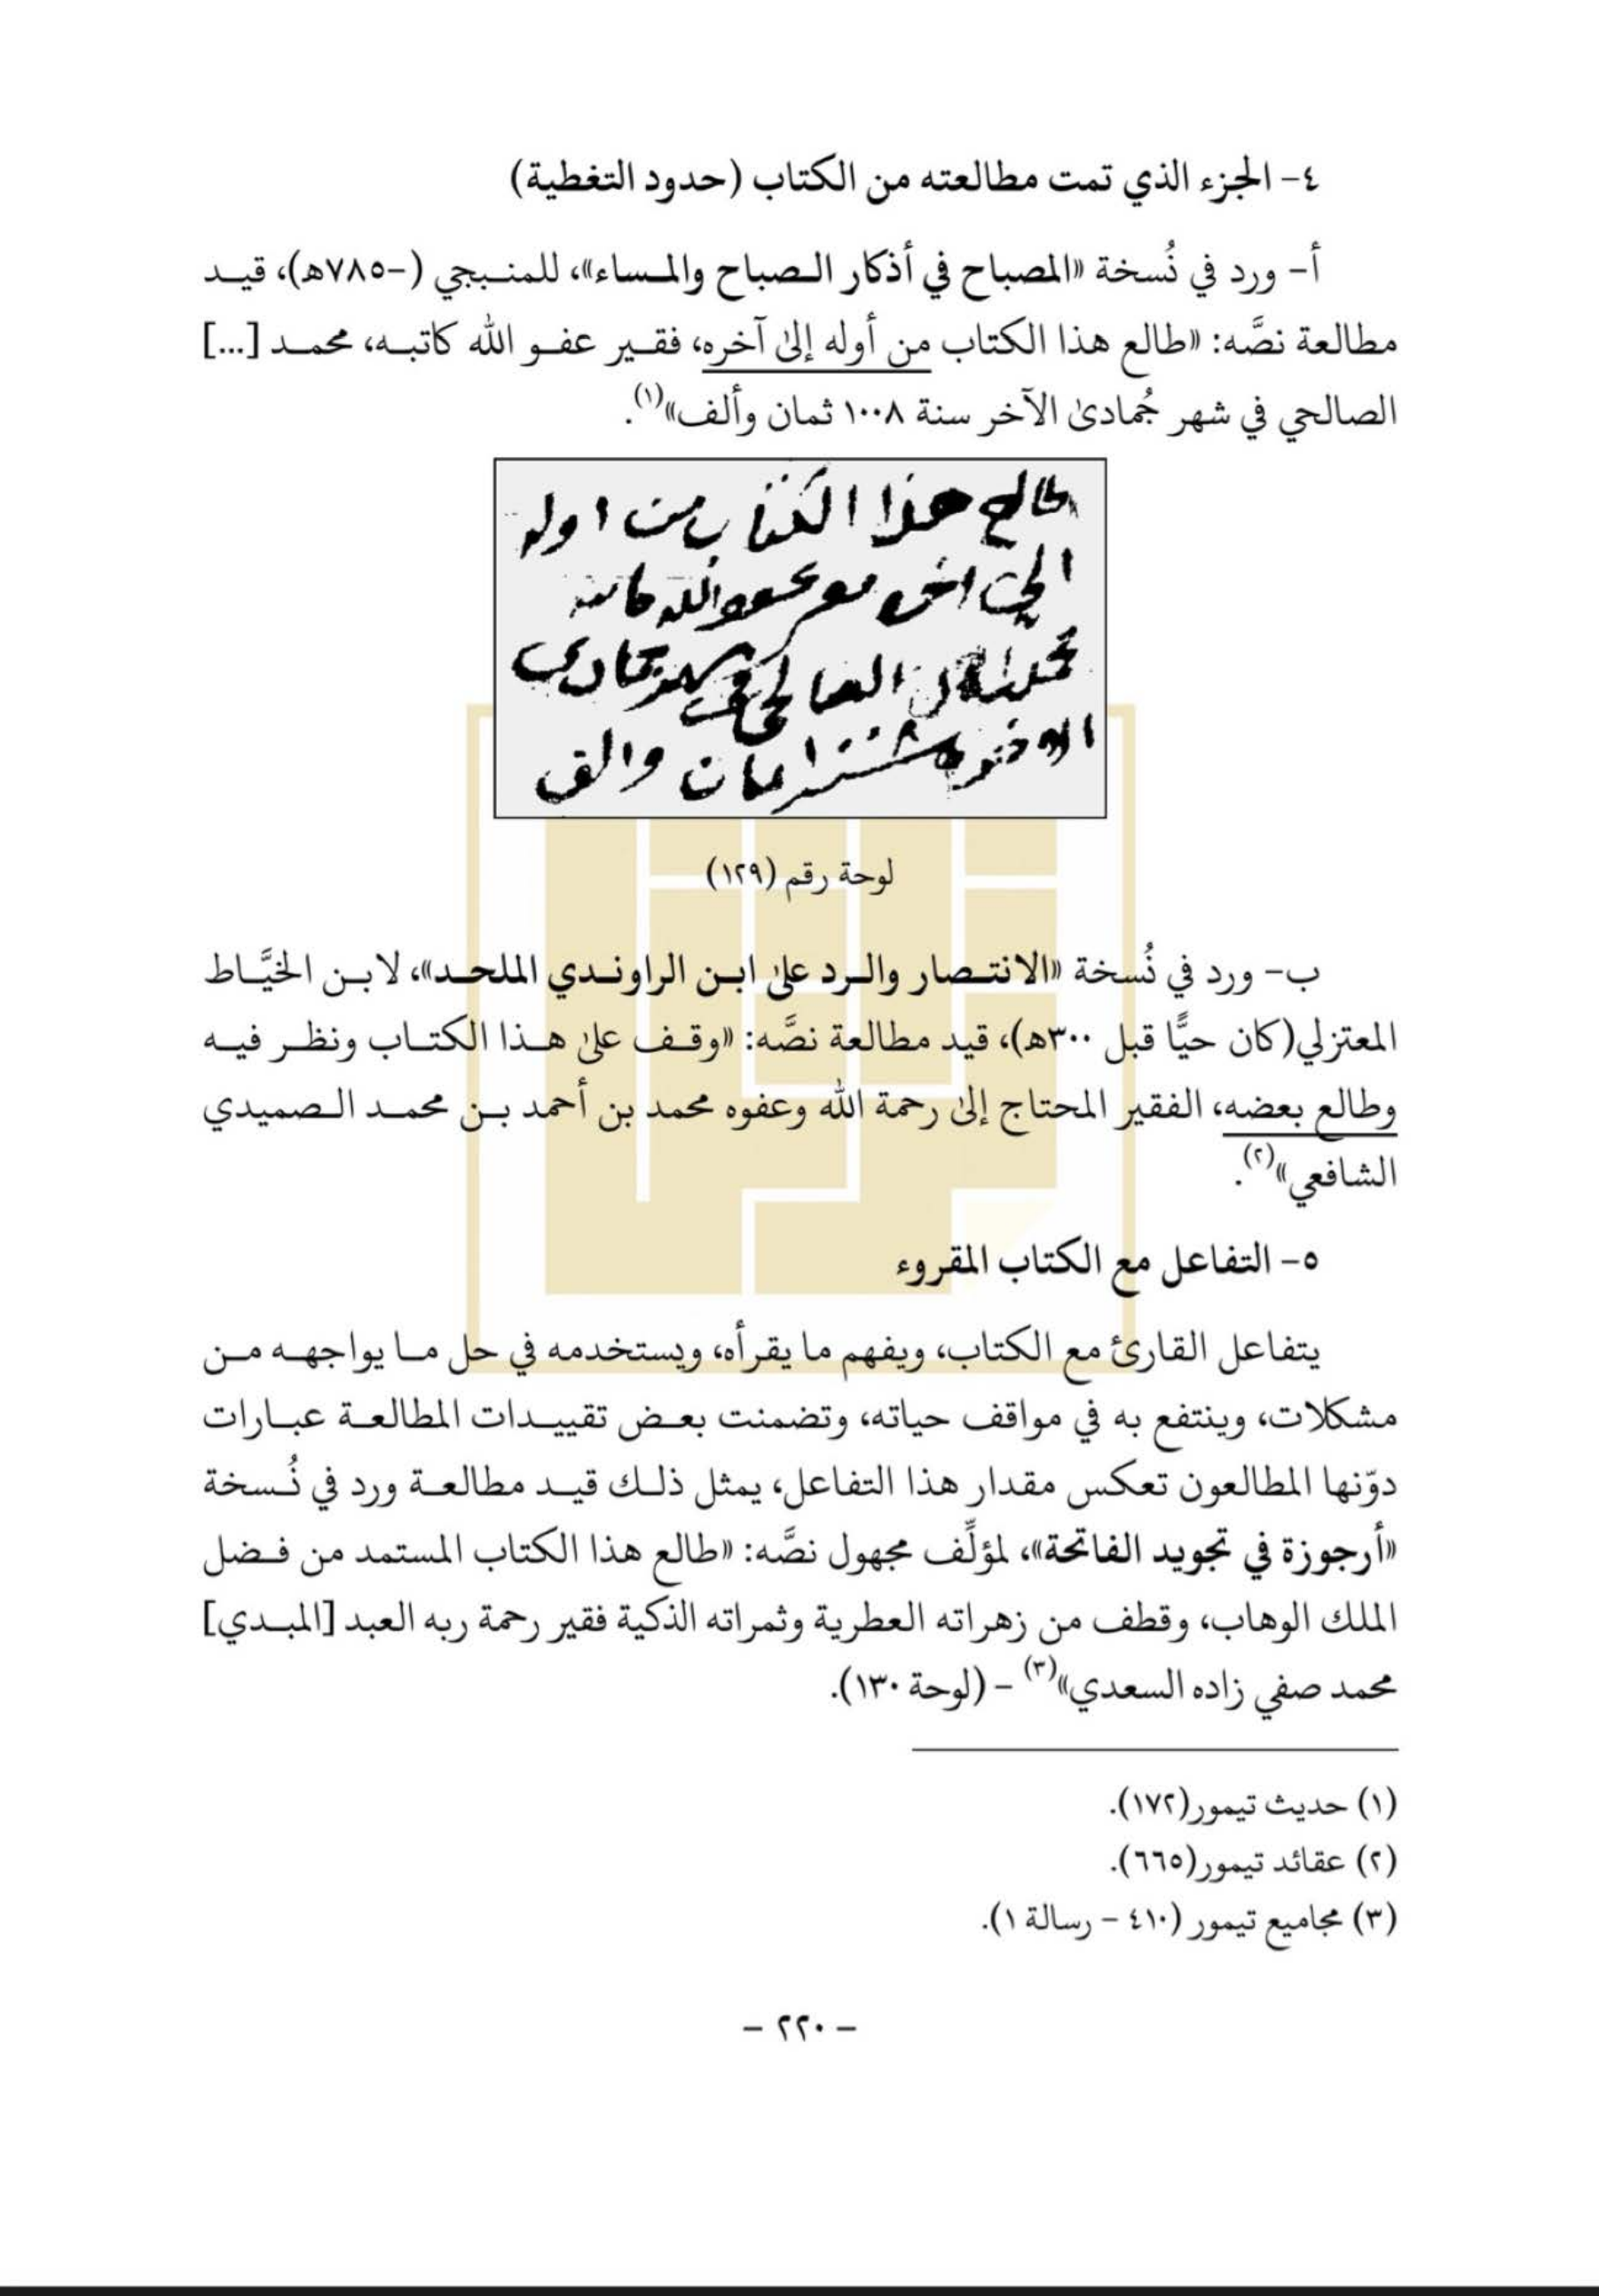 ٤- الجزء الذي تمت مطالعته من الكتاب (حدود التغطية)
أ- ورد في نُسخة «المصباح في أذكار الصباح والمساء»، للمنبجي (-٧٨٥هـ)، قيد
مطالعة نصَّه: «طالع هذا الكتاب من أوله إلى آخره، فقير عفو الله كاتبه، محمد [...]
الصالحي في شهر جُمادى الآخر سنة ١٠٠٨ ثمان وألف»(١).
طالع هذا الكتاب من اوله
الى اخره فقير عفو الله كاتبه
محمد الصالحي في شهر جمادى
الاخر سنة ثمان والف
لوحة رقم (١٢٩)
ب- ورد في نُسخة «الانتصار والرد على ابن الراوندي الملحد»، لابن الخيَّاط
المعتزلي(كان حيًّا قبل ٣٠٠هـ)، قيد مطالعة نصَّه: «وقف على هذا الكتاب ونظر فيه
وطالع بعضه، الفقير المحتاج إلى رحمة الله وعفوه محمد بن أحمد بن محمد الصميدي
الشافعي»(٢).
٥- التفاعل مع الكتاب المقروء
يتفاعل القارئ مع الكتاب، ويفهم ما يقرأه، ويستخدمه في حل ما يواجهه من
مشكلات، وينتفع به في مواقف حياته، وتضمنت بعض تقييدات المطالعة عبارات
دوّنها المطالعون تعكس مقدار هذا التفاعل، يمثل ذلك قيد مطالعة ورد في نُسخة
«أرجوزة في تجويد الفاتحة»، لمؤلِّف مجهول نصَّه: «طالع هذا الكتاب المستمد من فضل
الملك الوهاب، وقطف من زهراته العطرية وثمراته الذكية فقير رحمة ربه العبد [المبدي]
محمد صفي زاده السعدي»(٣) - (لوحة ١٣٠).
(١) حديث تيمور(١٧٢).
(٢) عقائد تيمور(٦٦٥).
(٣) مجاميع تيمور (٤١٠ - رسالة ١).
- ٢٢٠ -